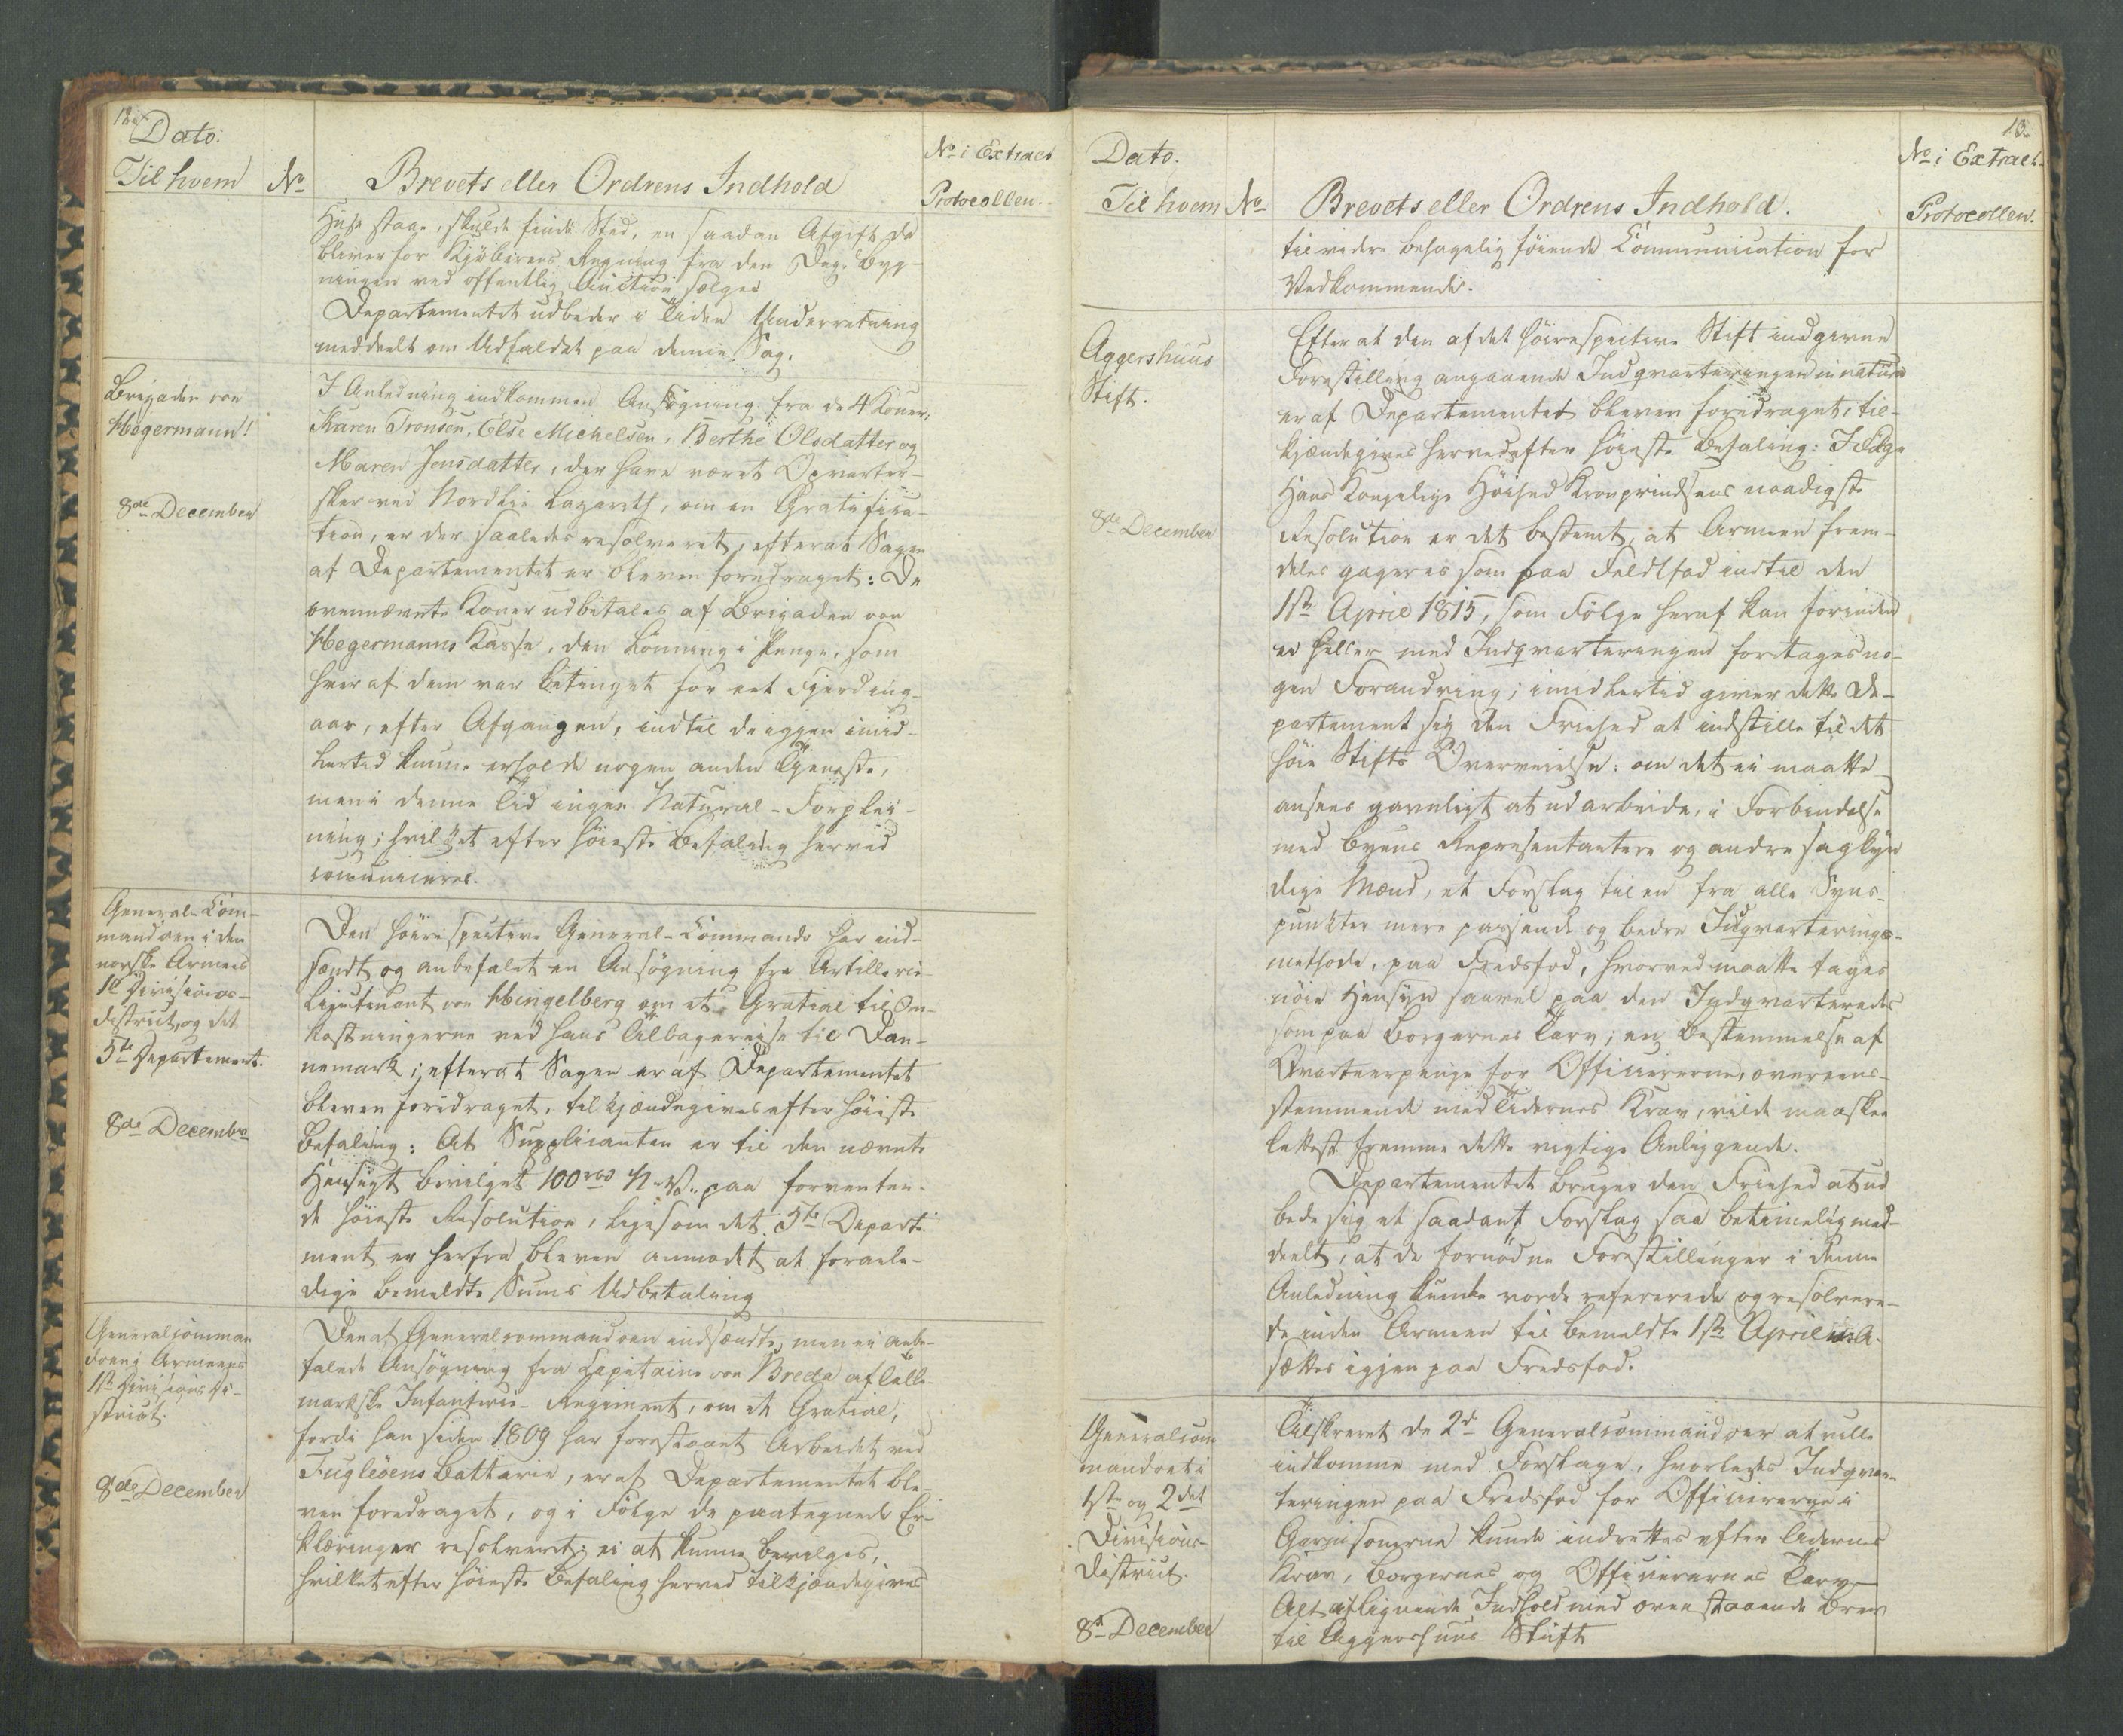 12.
Dato.
Til hvem
No
Brevets eller Ordrens Indhold
No i Extract
Protocollen.
Huse staae, skulde finde Sted, en saadan Afgift da
bliver for Kjöberens Regning fra den Dag Byg-
ningen ved offentlig Auction sælges
Departementet udbeder i Tiden Underretning
meddeelt om Udfaldet paa denne Sag.
Brigaden von
Hegermann!
8de December
I Anledning indkommen Ansögning fra de 4 Koner,
Karen Tronsen, Else Michelsen, Berthe Olsdatter og
Maren Jensdatter, der have været Opvarter-
sker ved Nordlie Lazareth, om en Gratifica-
tion, er der saaledes resolveret, efterat Sagen
af Departementet er bleven foredraget: De
ovennævnte Koner udbetales af Brigaden von
Hegermanns Kasse, den Lönning i Penge, som
hver af dem var betinget for eet Fjerding-
aar, efter Afgangen, indtil de iggen imid-
lertid kunne erholde nogen anden Tjeneste,
men i denne Tid ingen Natural-Forplei-
ning; hvilket efter höieste Befaling herved
communiceres.
General-Com-
mandoen i den
norske Armees
1ste Divisions-
district, og det
5te Departement.
8de Decembr
Den höirespective General-Commando har ind-
sændt og anbefalet en Ansögning fra Artillerie-
Lieutenant von Hingelberg om et Gratial til Om-
kostningerne ved hans Tilbagereise til Dan-
nemark; efterat Sagen er af Departementet
bleven foredraget, tilkjændegives efter höieste
Befaling: At Supplicanten er til den nævnte
Hensigt bevilget 100 rbd N.V. paa forventen-
de höieste Resolution, ligesom det 5te Departe
ment er herfra bleven anmodet at foranle-
dige bemeldte Sums Udbetaling
Generalcomman
doen i Armeens
1ste Divisions Di-
strict.
8de December
Den af Generalcommandoen indsændte, men ei anbe-
falede Ansögning fra Capitaine von Breda af Telle-
markske Infanterie-Regiment, om et Gratial,
fordi han siden 1809 har forestaaet Arbeidet ved
Fugleöens Batterie, er af Departementet ble-
ven foredraget, og i Fölge de paategnede Er-
klæringer resolveret: ei at kunne bevilges,
hvilket efter höieste Befaling herved tilkjændegives
13.
Dato.
Til hvem
No
Brevets eller Ordrens Indhold.
No i Extract-
Protocollen.
til videre behagelig föiende Communication for
Vedkommende.
Aggershuus
Stift.
8de December
Efterat den af det höirespective Stift indgivne
Forestilling angaaende Indqvarteringen in natura
er af Departementet bleven foredraget, til-
kjændegives herved efter höieste Befaling: I Fölge
Hans Kongelige Höihed Kronprindsens naadigste
Resolution er det bestemt, at Armeen frem-
deles gageres som paa Feldtfod indtil den
1ste April 1815, som Fölge heraf kan forinden
ei heller med Indqvarteringen foretages no-
gen Forandring; imidlertid giver dette De-
partement sig den Frihed at indstille til det
höie Stifts Overveielse: om det ei maatte
ansees gavnligt at udarbeide, i Forbindelse
med Byens Representantere og andre sagkyn
dige Mænd, et Forslag til en fra alle Syns-
punkter mere passende og bedre Indqvarterings-
methode, paa Fredsfod, hvorved maatte tages
nöie Hensyn saavel paa den Indqvarteredes
som paa Borgernes Tarv; en Bestemmelse af
Qvarteerpenge for Officiererne, overeens-
stemmende med Tidernes Krav, vilde maaskee
lettest fremme dette vigtige Anliggende.
Departementet bruger den Frihed at ud
bede sig et saadant Forslag saa betimelig med-
deelt, at de fornödne Forestillinger i denne
Anledning kunde vorde refererede og resolvere-
de inden Armeen til bemeldte 1ste April n. A.
sættes igjen paa Fredsfod.
Generalcom
mandoet i
1ste og 2det
Divisions-
District.
8de December
Tilskrevet de 2de Generalcommandoer at ville
indkomme med Forslage, hvorledes Indqvar-
teringen paa Fredsfod for Officiererne i
Garnisonerne kunde indrettes efter Tidernes
Krav, Borgernes og Officierernes Tarv
Alt af lignende Indhold med ovenstaaende Brev
til Aggershuus Stift